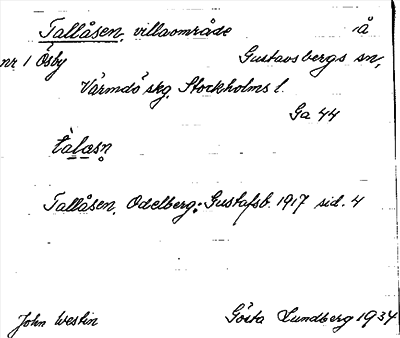 Tallåsen, villaområde i å
nr 1 Ösby Gustavsbergs sn,
Värmdö skg. Stockholms l.
Ga 44
tàlåsn̥
Tallåsen, Odelberg: Gustafsb. 1917 sid. 4
John Westin Gösta Lundberg 1934